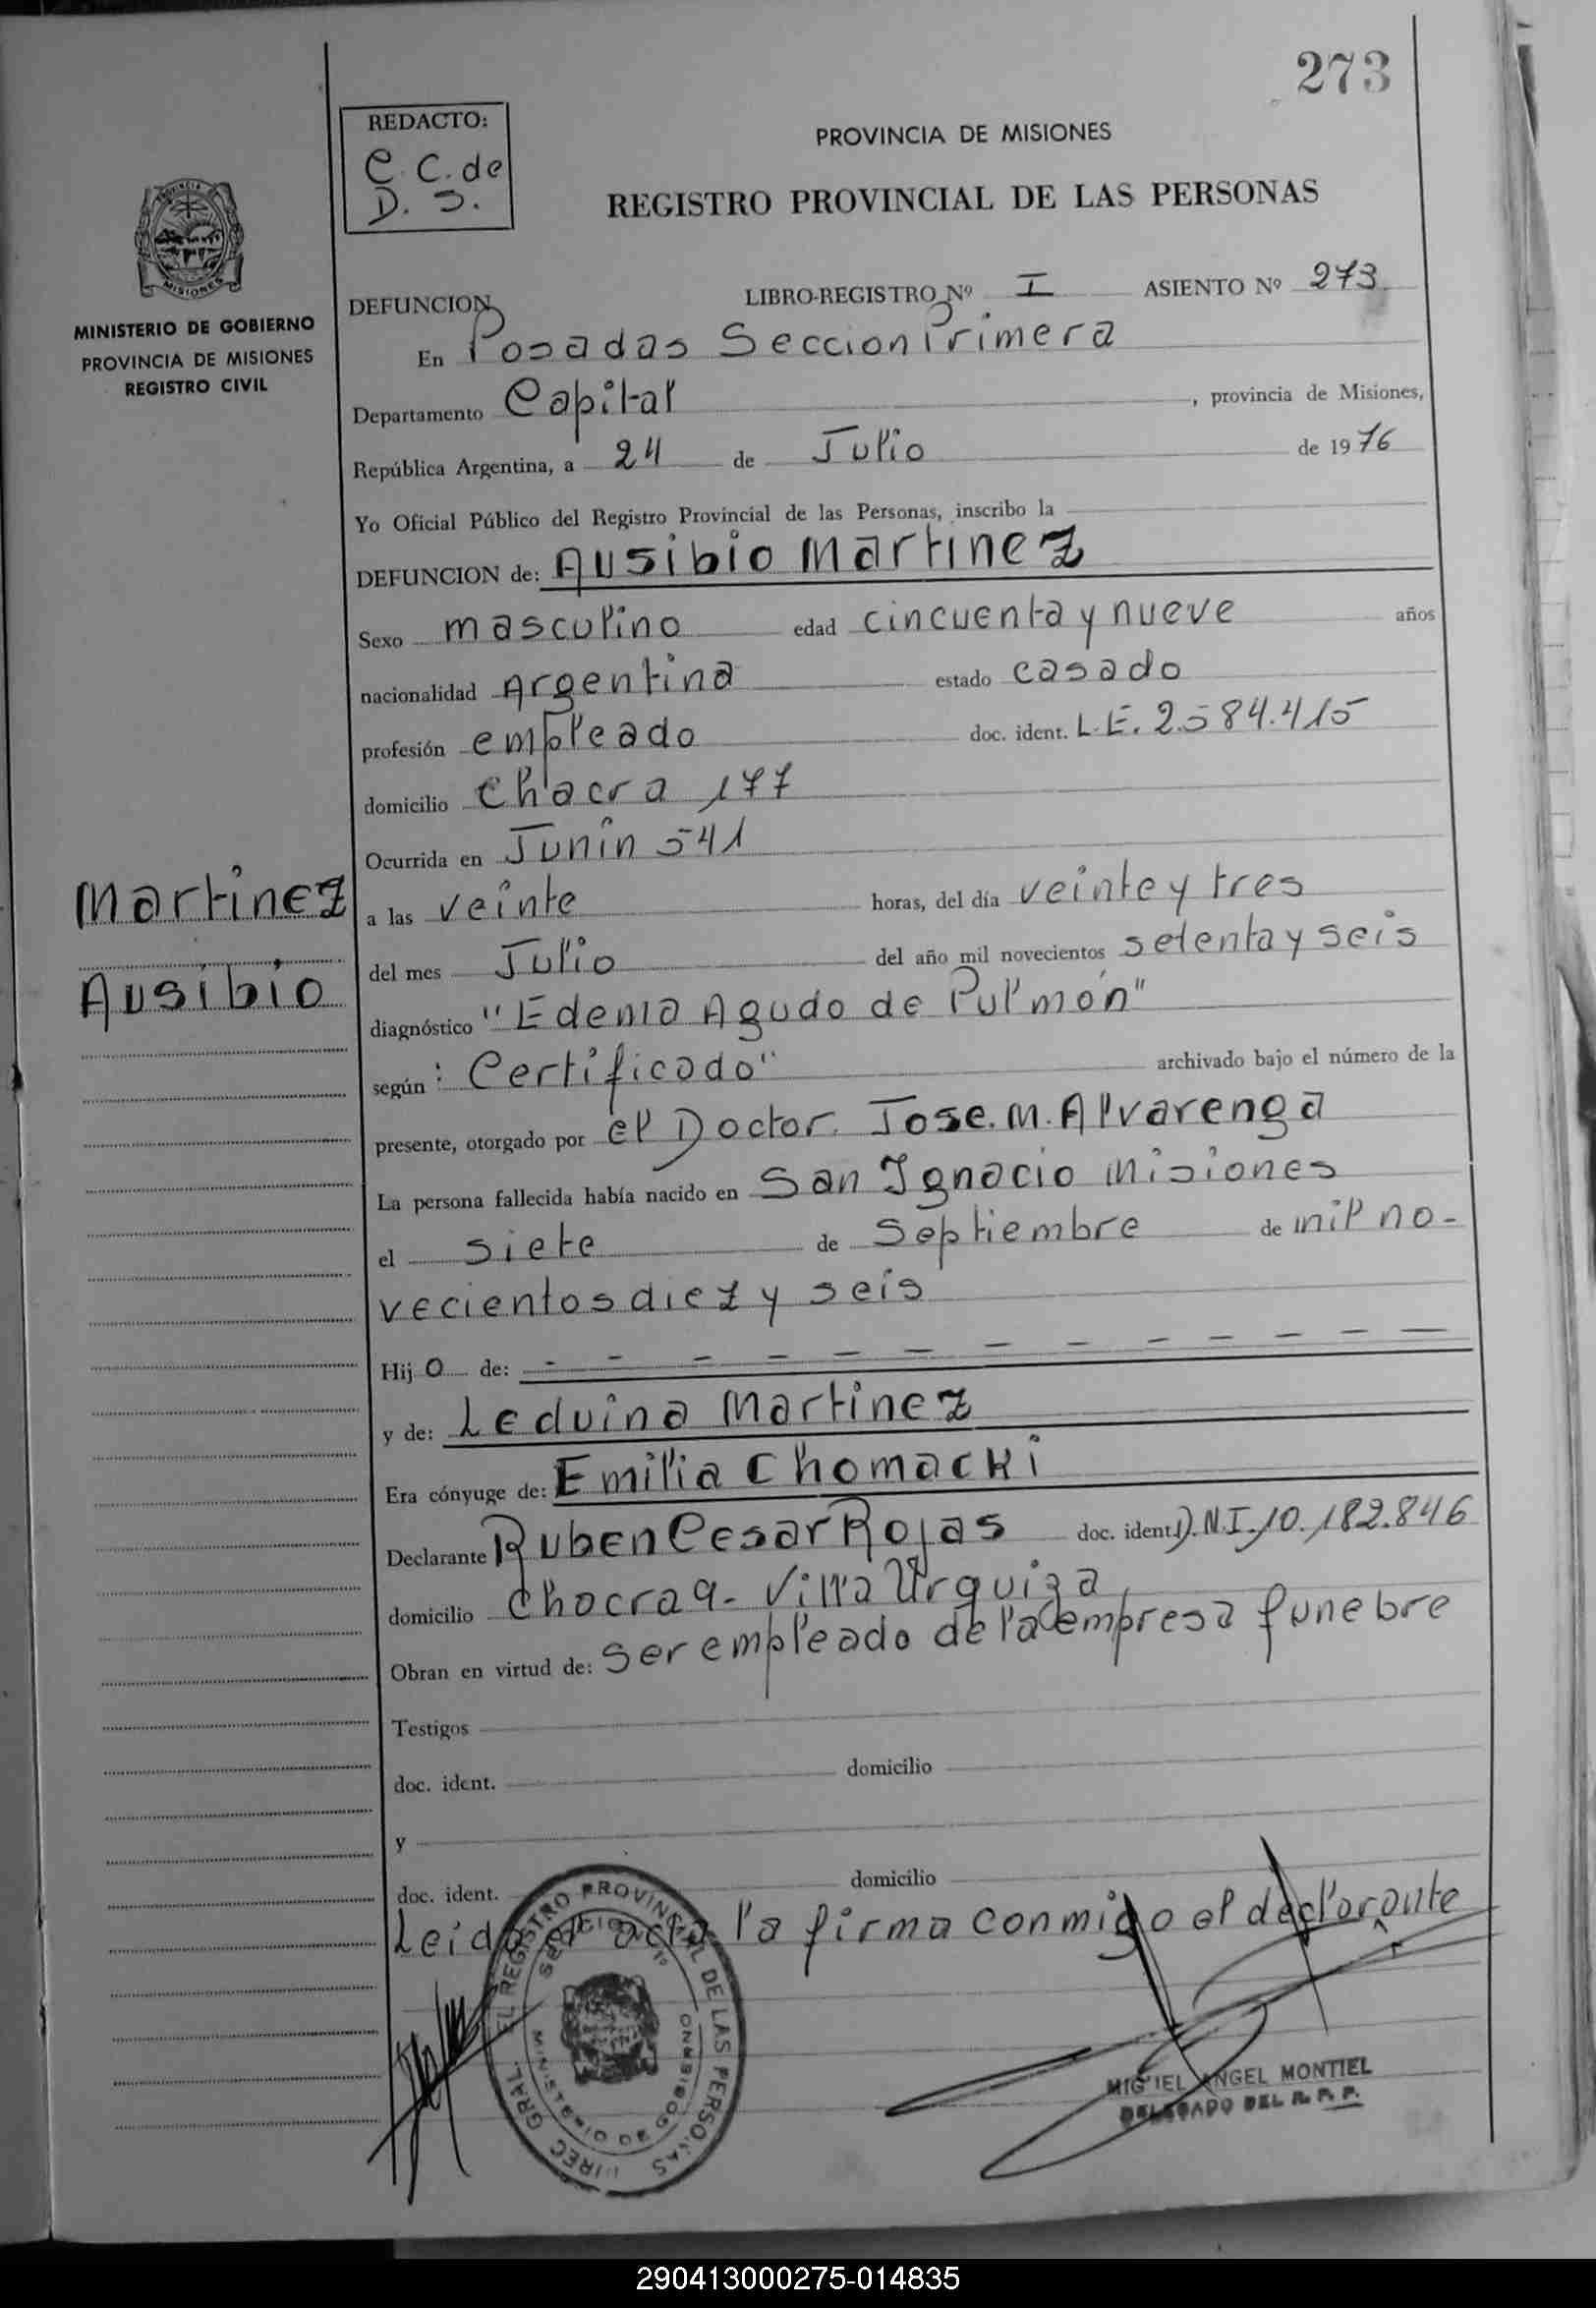 273
REDACTO:
C. C. de
D. S.
PROVINCIA DE MISIONES
REGISTRO PROVINCIAL DE LAS PERSONAS
MINISTERIO DE GOBIERNO
PROVINCIA DE MISIONES
REGISTRO CIVIL
DEFUNCION LIBRO-REGISTRO Nº I ASIENTO Nº 273
En Posadas Seccion Primera
Departamento Capital, provincia de Misiones,
República Argentina, a 24 de Julio de 1976
Yo Oficial Público del Registro Provincial de las Personas, inscribo la
DEFUNCION de: Ausibio Martinez
Sexo masculino edad cincuenta y nueve años
nacionalidad Argentina estado casado
profesión empleado doc. ident. L.E. 2.584.415
domicilio Chacra 177
Ocurrida en Junin 541
Martinez
a las veinte horas, del día veinte y tres
del mes Julio del año mil novecientos setenta y seis
Ausibio
diagnóstico "Edema Agudo de Pulmón"
según: Certificado" archivado bajo el número de la
presente, otorgado por el Doctor. Jose. M. Alvarenga
La persona fallecida había nacido en San Ignacio Misiones
el siete de Septiembre de mil no-
vecientos diez y seis
Hijo de: - - - - - - - - - - - -
y de: Leduina Martinez
Era cónyuge de: Emilia Chomacki
Declarante Ruben Cesar Rojas doc. ident. D.N.I. 10.182.846
domicilio Chacra 9- Villa Urquiza,
Obran en virtud de: Ser empleado de la empresa funebre
Testigos
doc. ident. domicilio
y
doc. ident. domicilio
Leida el acta la firma conmigo el declarante
DIREC GRAL. DEL REGISTRO PROVINCIAL DE LAS PERSONAS
SECCION 1º
MINISTERIO DE GOBIERNO
MIGUEL ANGEL MONTIEL
DELEGADO DEL R. P. P.
290413000275-014835